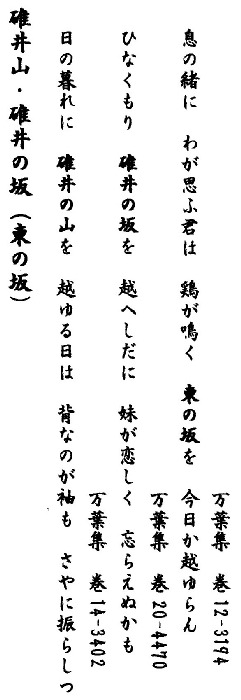 碓井山・碓井の坂（東の坂）
日の暮れに　碓井の山を　越ゆる日は　背なのが袖も　さやに振らしつ
万葉集　巻 14-3402
ひなくもり　碓井の坂を　越へしだに　妹が恋しく　忘らえぬかも
万葉集　巻 20-4470
息の緒に　わが思ふ君は　鶏が鳴く　東の坂を　今日か越ゆらん
万葉集　巻 12-3194